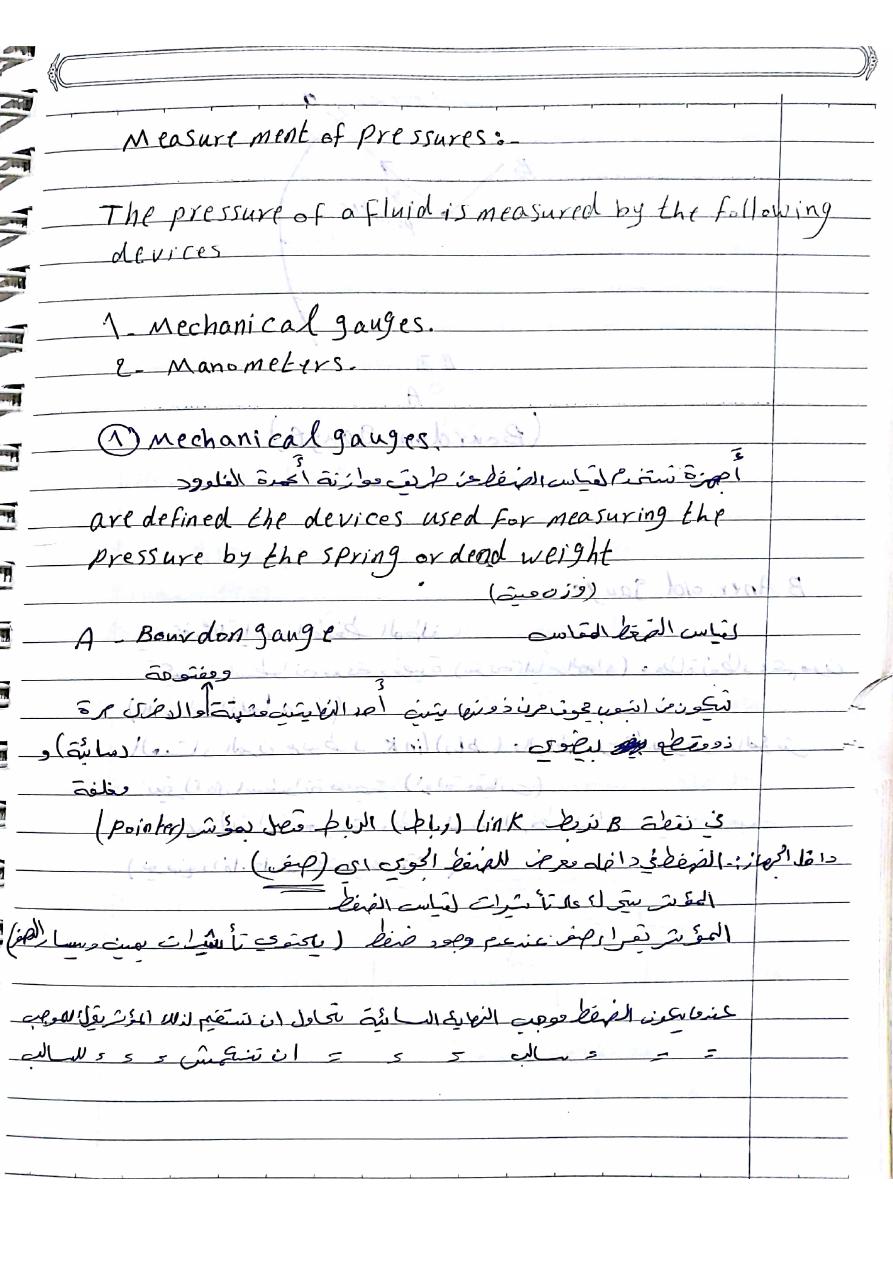 Measurement of pressures:-
The pressure of a fluid is measured by the following
devices
1- Mechanical gauges.
2- Manometers.
① Mechanical gauges.
أجهزة تستخدم لقياس الضغط عن طريق موازنة أعمدة الفلوود
are defined the devices used for measuring the
pressure by the spring or dead weight
(وزن ميتة)
A - Bourdon gauge لقياس الضغط المقاسه
ومفتوحة
تتكون من انبوب مجوف مرن ذو نهايتين أحد النهايتين مثبتة والاخرى حرة
ذو مقطع بيضوي. (سائبة) و
مغلفة
في نقطة B تربط link (رباط) الرباط متصل بمؤشر (pointer)
داخل الجهاز:- الضغط في داخله معرض للضغط الجوي اي (صفر).
المؤشر يتحرك على تأشيرات لقياس الضغط
المؤشر يقرا صفر عند عدم وجود ضغط (يحتوي تأشيرات يمين ويسار الصفر)
عندما يكون الضغط موجب النهاية السائبة تحاول ان تستقيم لذلك المؤشر يقرا للموجب
= = = سالب = = = ان تنكمش = = = للسالب